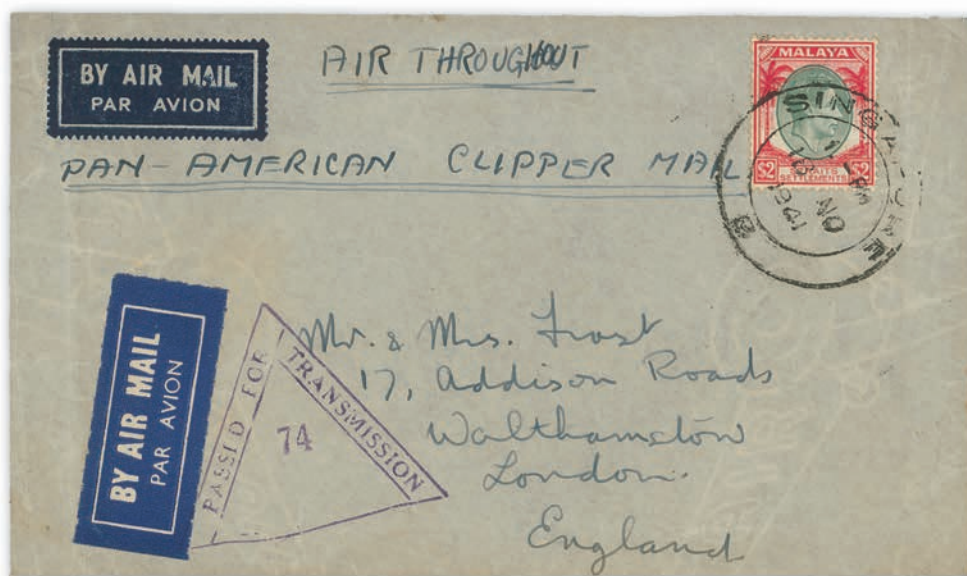 BY AIR MAIL
PAR AVION
AIR THROUGHOUT
PAN-AMERICAN CLIPPER MAIL
MALAYA
$2 STRAITS $2
SETTLEMENTS
SINGAPORE
1 - PM
NO
1941
BY AIR MAIL
PAR AVION
PASSED FOR
TRANSMISSION
74
Mr. & Mrs. Frost
17, Addison Roads
Walthamstow
London.
England